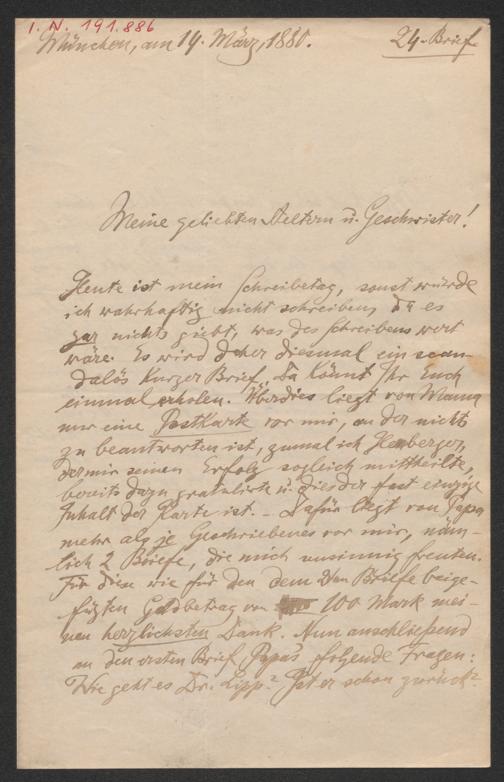 I. N. 191.886
München, am 14. März, 1880.
24. Brief
Meine geliebten Aeltern u. Geschwister!
Heute ist mein Schreibetag, sonst würde
ich wahrhaftig nicht schreiben, da es
gar nichts giebt, was des Schreibens wert
wäre. Es wird daher diesmal ein scan-
dalös kurzer Brief. Da könnt Ihr Euch
einmal erholen. Überdies liegt von Mama
nur eine Postkarte vor mir, an der nichts
zu beantworten ist, zumal ich
der mir seinen Erfolg sogleich mittheilte,
bereits dazu gratulirte u. dies der fast einzige
Inhalt der Karte ist. – Dafür liegt von Papa
mehr als je Geschriebenes vor mir, näm-
lich 2 Briefe, die mich unsinnig freuten.
Für diese wie für den dem 2ten Briefe beige-
fügten Geldbetrag von 100 Mark mei-
nen herzlichsten Dank. Nun anschließend
an den ersten Brief Papa's folgende Fragen:
Wie geht es Dr. Lipp? Ist er schon zurück?